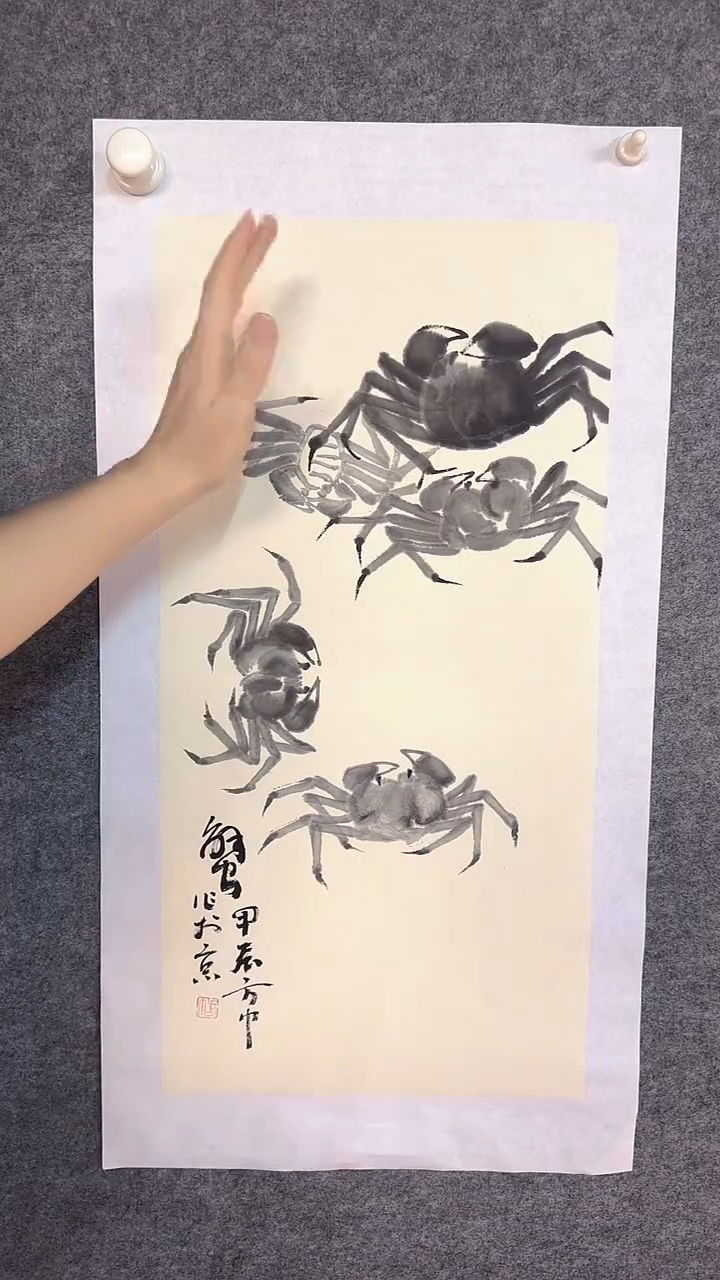 蟹
甲辰方中
作於京